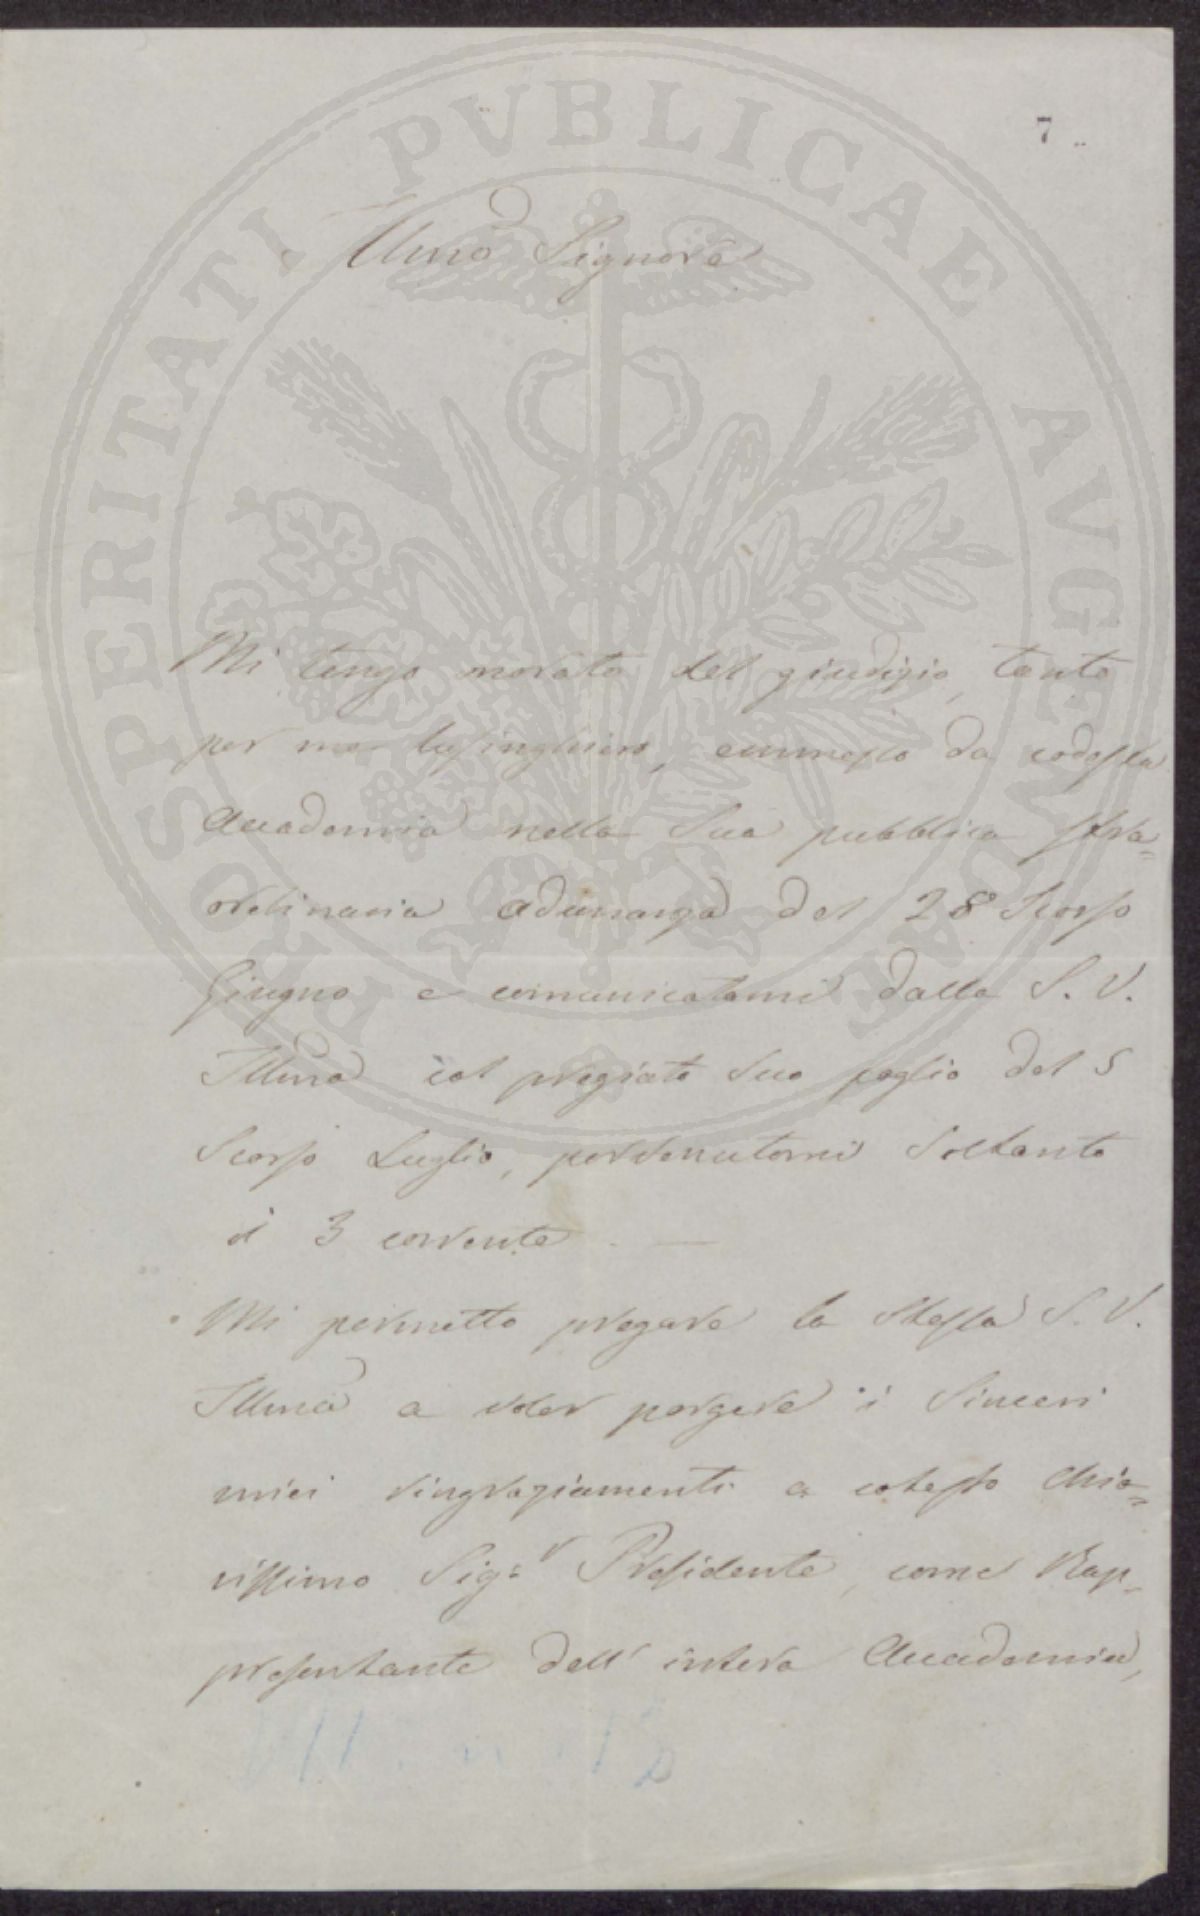 7
Illmo Signore
Mi tengo onorato del giudizio, tanto
per me lusinghiero, emmesso da codesta
Accademia nella Sua pubblica stra=
ordinaria adunanza del 28 Scorso
Giugno e comunicatomi dalla S. V.
Illma col pregiato suo foglio del 5
Scorso Luglio, pervenutomi soltanto
il 3 corrente. —
Mi permetto pregare la stessa S. V.
Illma a voler porgere i sinceri
miei ringraziamenti a cotesto Chia=
rissimo Sigr Presidente, come Rap=
presentante dell' intera Accademia,
PROSPERITATI PVBLICAE AVGENDAE